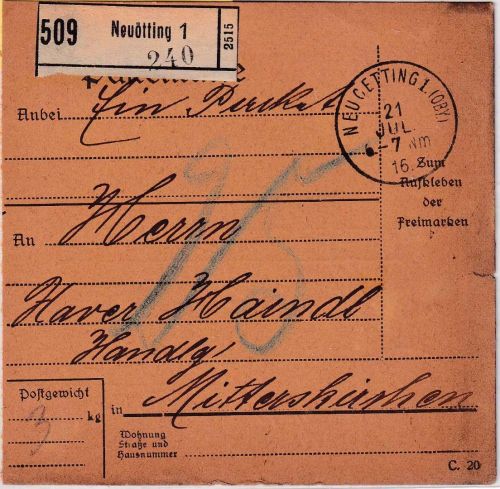 509 Neuötting 1 2515
240
Anbei Ein Packet
NEUOETTING 1. (OBY.)
21
JUL.
6-7 Nm
16
Zum
Aufkleben
der
Freimarken
15
An Herrn
Xaver Haindl
Handlg.
Postgewicht
3 kg
in Mitterskirchen
Wohnung
Straße und
Hausnummer
C. 20